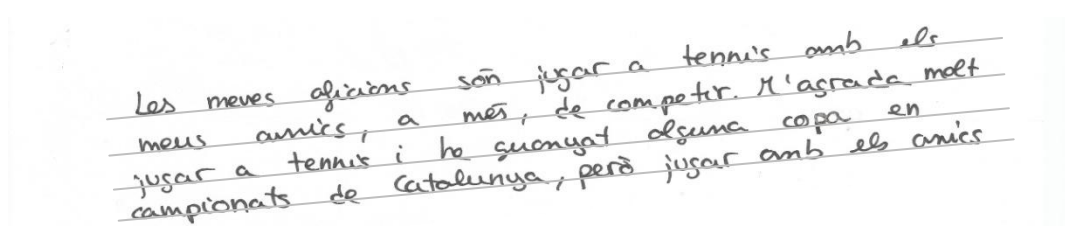 Les meves aficions són jugar a tennis amb els
meus amics, a més, de competir. M'agrada molt
jugar a tennis i he guanyat alguna copa en
campionats de Catalunya, però jugar amb els amics